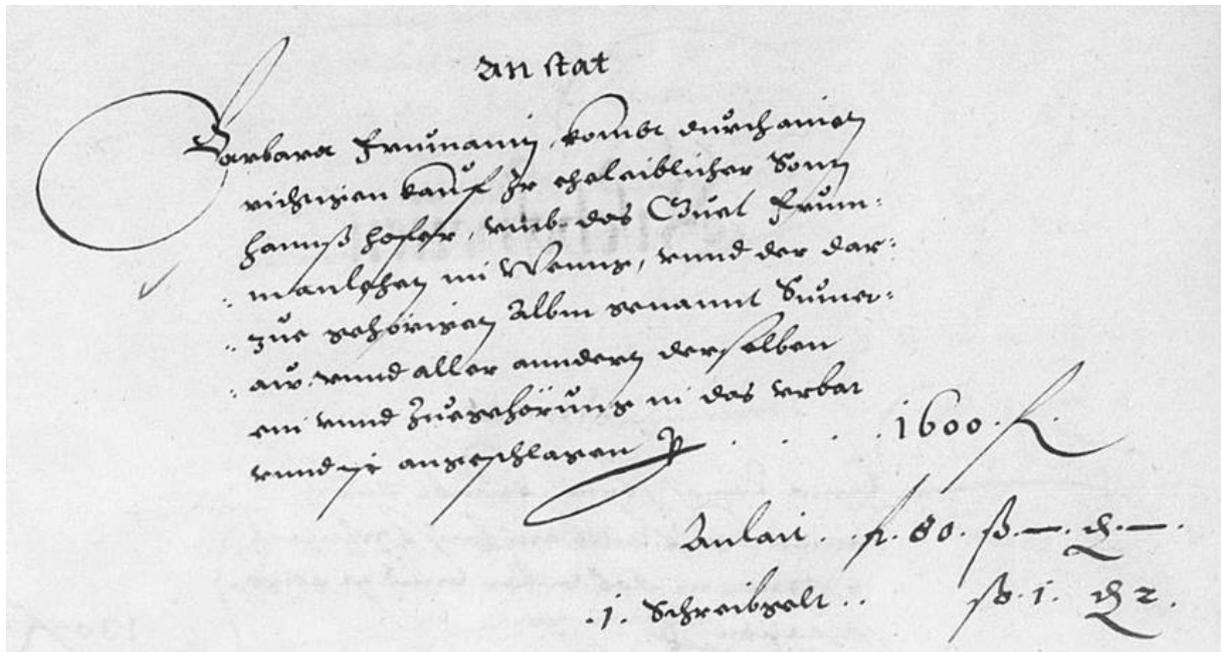 An stat
Barbara Frumanin, kombt durch ainen
richtigen kauf Ir eheleiblicher Sonn
Hannß Hofer, umb das Guet Frum-
manlehen in Weng, unnd der dar-
zue gehörigen Albm genannt Sumer-
aw. unnd aller anndern derselben
ein unnd Zuegehörung in das urbar
unnd ist angeschlagen p . . . 1600. fl
Anlait . . fl. 80. ß. —. d. —.
.1. Schreibgelt . . ß. 1. d 2.